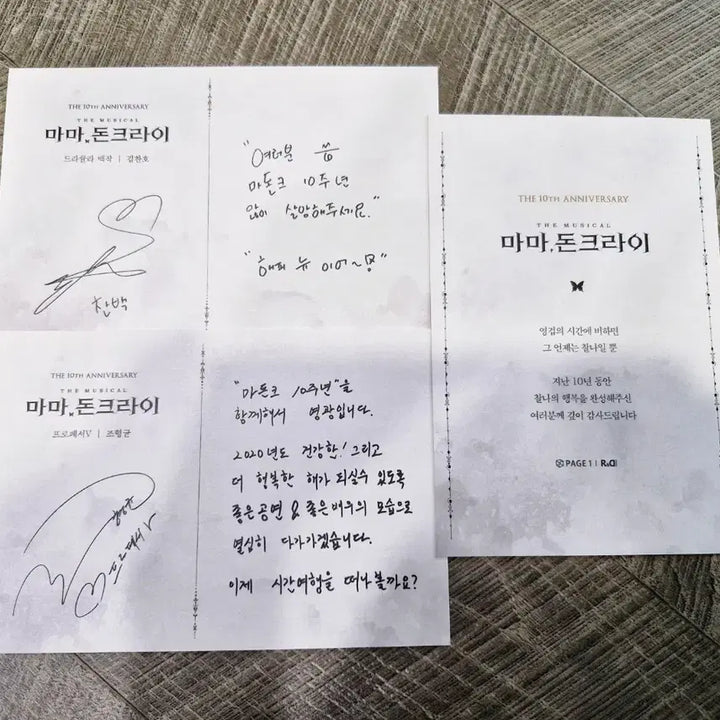 THE 10TH ANNIVERSARY
THE MUSICAL
마마, 돈크라이
드라큘라 백작 | 김찬호
찬백
"여러분
마돈크 10주년
많이 살앙해주세요."
"해피 뉴 이어~
THE 10TH ANNIVERSARY
THE MUSICAL
마마, 돈크라이
프로페서V | 조형균
프로페서 V
"마돈크 10주년"을
함께해서 영광입니다.
2020년도 건강한! 그리고
더 행복한 해가 되실수 있도록
좋은공연 & 좋은배우의 모습으로
열심히 다가가겠습니다.
이제 시간여행을 떠나볼까요?
THE 10TH ANNIVERSARY
THE MUSICAL
마마, 돈크라이
영겁의 시간에 비하면
그 언제는 찰나일 뿐
지난 10년 동안
찰나의 행복을 완성해주신
여러분께 깊이 감사드립니다
PAGE 1 | R&D